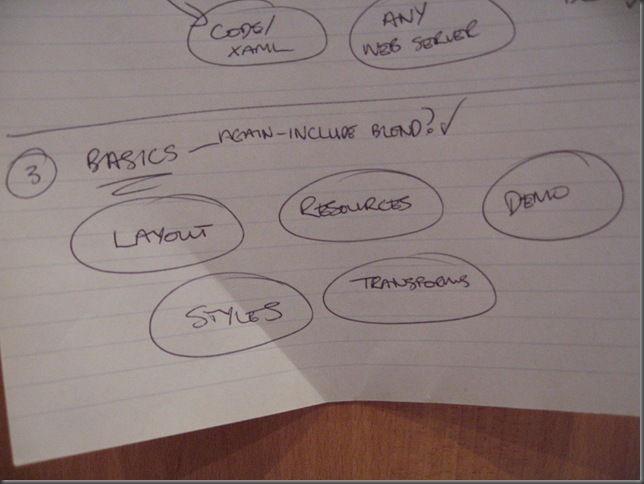 CODE/
XAML
ANY
WEB SERVER
3
BASICS – AGAIN-INCLUDE BLEND? ✓
LAYOUT
RESOURCES
DEMO
STYLES
TRANSFORMS